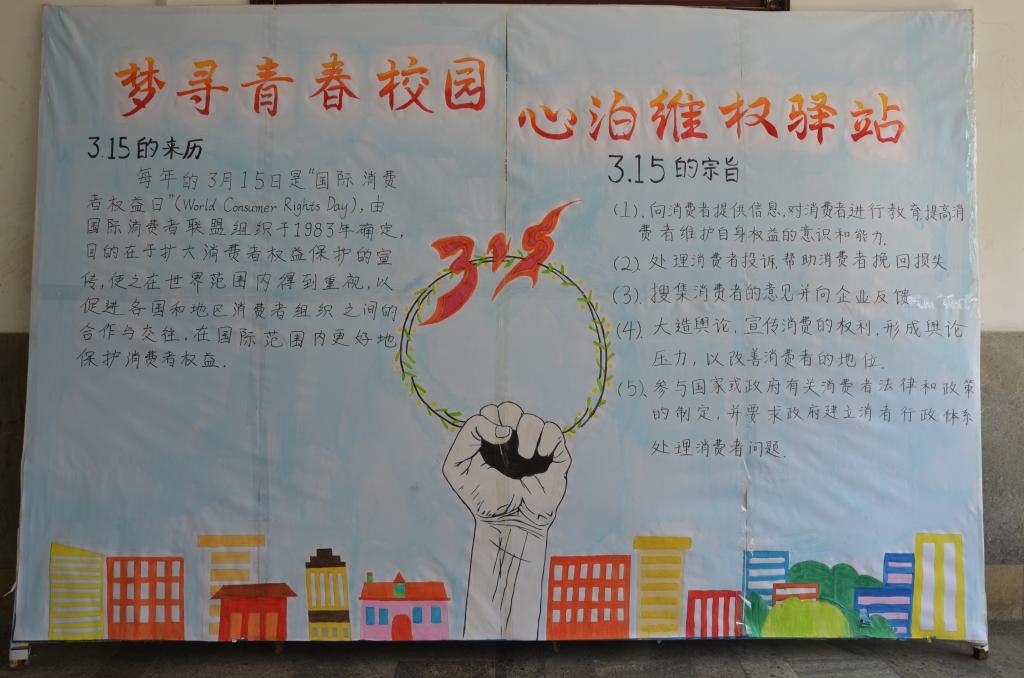 梦寻青春校园
心泊维权驿站
3.15的来历
每年的3月15日是“国际消费
者权益日”(World Consumer Rights Day),由
国际消费者联盟组织于1983年确定,
目的在于扩大消费者权益保护的宣
传,使之在世界范围内得到重视,以
促进各国和地区消费者组织之间的
合作与交往,在国际范围内更好地
保护消费者权益.
315
3.15的宗旨
(1).向消费者提供信息,对消费者进行教育,提高消
费者维护自身权益的意识和能力.
(2).处理消费者投诉,帮助消费者挽回损失
(3).搜集消费者的意见并向企业反馈
(4).大造舆论,宣传消费的权利,形成舆论
压力,以改善消费者的地位.
(5).参与国家或政府有关消费者法律和政策
的制定,并要求政府建立消者行政体系
处理消费者问题.